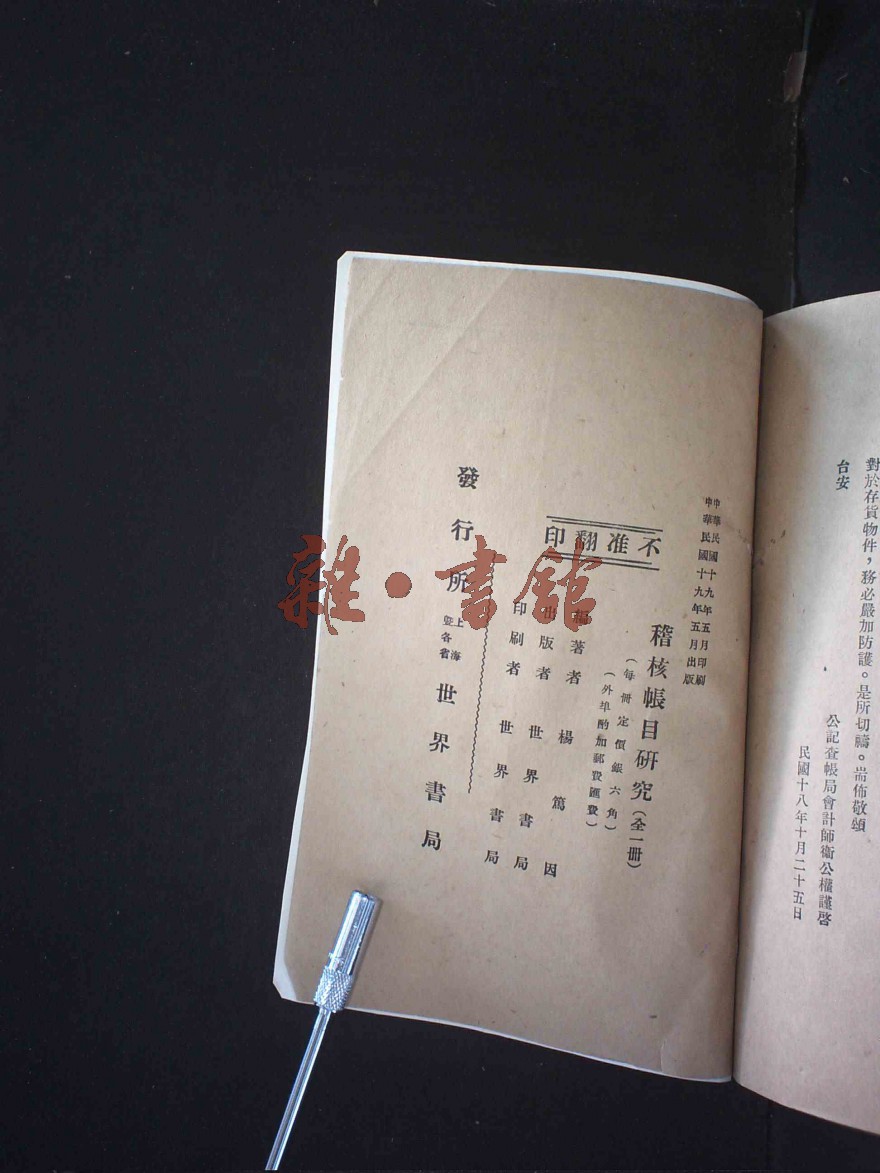 對於存貨物件，務必嚴加防護。是所切禱。耑佈敬頌
台安
公記查帳局會計師衞公權謹啓
民國十八年十月二十五日
中華民國十九年五月印刷
中華民國十九年五月出版
不准翻印
稽核帳目研究（全一冊）
（每冊定價銀六角）
（外埠酌加郵費匯費）
編著者 楊篤因
出版者 世界書局
印刷者 世界書局
發行所 上海暨各省 世界書局
雜·書館